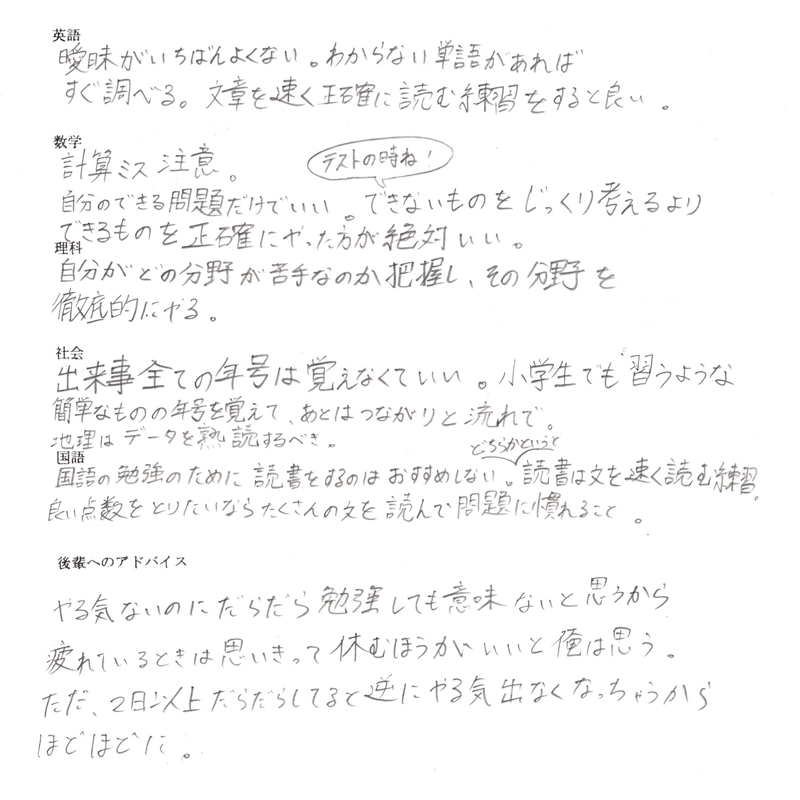 英語
曖昧がいちばんよくない。わからない単語があれば
すぐ調べる。文章を速く正確に読む練習をすると良い。
数学
計算ミス注意。
テストの時ね!
自分のできる問題だけでいい。できないものをじっくり考えるより
できるものを正確にやった方が絶対いい。
理科
自分がどの分野が苦手なのか把握し、その分野を
徹底的にやる。
社会
出来事全ての年号は覚えなくていい。小学生でも習うような
簡単なものの年号を覚えて、あとはつながりと流れで。
地理はデータを熟読するべき。
国語
どちらかというと
国語の勉強のために読書をするのはおすすめしない。読書は文を速く読む練習。
良い点数をとりたいならたくさんの文を読んで問題に慣れること。
後輩へのアドバイス
やる気ないのにだらだら勉強しても意味ないと思うから
疲れているときは思いきって休むほうがいいと俺は思う。
ただ、2日以上だらだらしてると逆にやる気出なくなっちゃうから
ほどほどに。